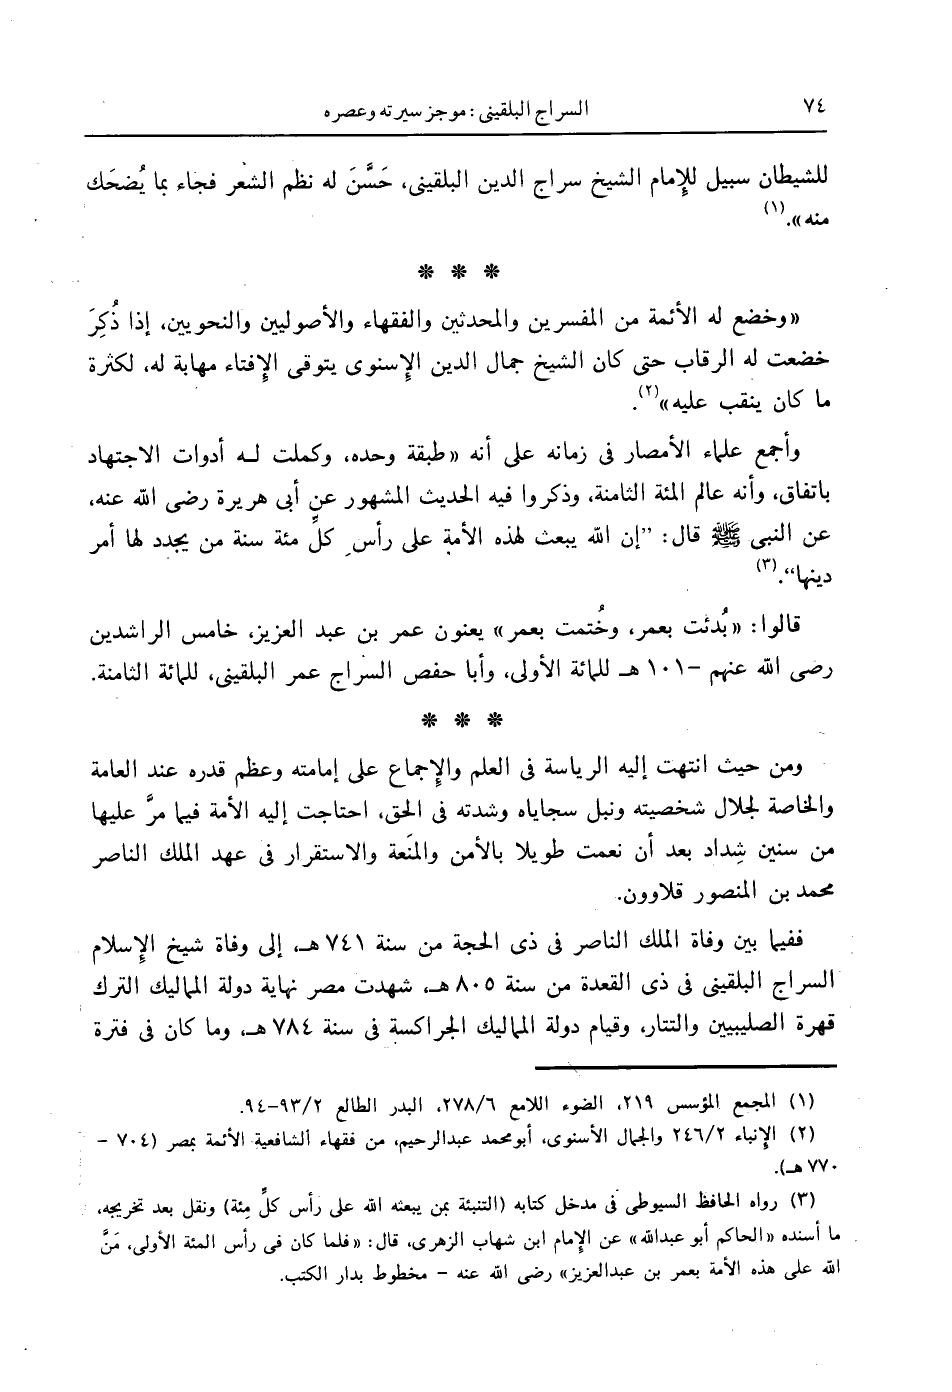 ٧٤
السراج البلقينى : موجز سيرته وعصره
للشيطان سبيل للإمام الشيخ سراج الدين البلقينى، حَسَّنَ له نظم الشعر فجاء بما يُضحَك
منه».(١)
* * *
«وخضع له الأئمة من المفسرين والمحدثين والفقهاء والأصوليين والنحويين، إذا ذُكِرَ
خضعت له الرقاب حتى كان الشيخ جمال الدين الإسنوى يتوقى الإفتاء مهابة له، لكثرة
ما كان ينقب عليه»(٢).
وأجمع علماء الأمصار فى زمانه على أنه «طبقة وحده، وكملت لـه أدوات الاجتهاد
باتفاق، وأنه عالم المئة الثامنة، وذكروا فيه الحديث المشهور عن أبى هريرة رضى الله عنه،
عن النبى ﷺ قال: ”إن الله يبعث لهذه الأمة على رأس كلِّ مئة سنة من يجدد لها أمر
دينها“.(٣)
قالوا: «بُدئت بعمر، وخُتمت بعمر» يعنون عمر بن عبد العزيز، خامس الراشدين
رضى الله عنهم –١٠١ هـ للمائة الأولى، وأبا حفص السراج عمر البلقينى، للمائة الثامنة.
* * *
ومن حيث انتهت إليه الرياسة فى العلم والإجماع على إمامته وعظم قدره عند العامة
والخاصة لجلال شخصيته ونبل سجاياه وشدته فى الحق، احتاجت إليه الأمة فيما مرَّ عليها
من سنين شِداد بعد أن نعمت طويلا بالأمن والمنَعة والاستقرار فى عهد الملك الناصر
محمد بن المنصور قلاوون.
ففيما بين وفاة الملك الناصر فى ذى الحجة من سنة ٧٤١ هـ، إلى وفاة شيخ الإسلام
السراج البلقينى فى ذى القعدة من سنة ٨٠٥ هـ، شهدت مصر نهاية دولة المماليك الترك
قهرة الصليبيين والتتار، وقيام دولة المماليك الجراكسة فى سنة ٧٨٤ هـ، وما كان فى فترة
(١) المجمع المؤسس ٢١٩، الضوء اللامع ٢٧٨/٦، البدر الطالع ٩٣/٢–٩٤.
(٢) الإنباء ٢٤٦/٢ والجمال الأسنوى، أبومحمد عبدالرحيم، من فقهاء الشافعية الأئمة بمصر (٧٠٤ –
٧٧٠ هـ).
(٣) رواه الحافظ السيوطى فى مدخل كتابه (التنبئة بمن يبعثه الله على رأس كلِّ مِئة) ونقل بعد تخريجه،
ما أسنده «الحاكم أبو عبدالله» عن الإمام ابن شهاب الزهرى، قال: «فلما كان فى رأس المئة الأولى، مَنَّ
الله على هذه الأمة بعمر بن عبدالعزيز» رضى الله عنه – مخطوط بدار الكتب.